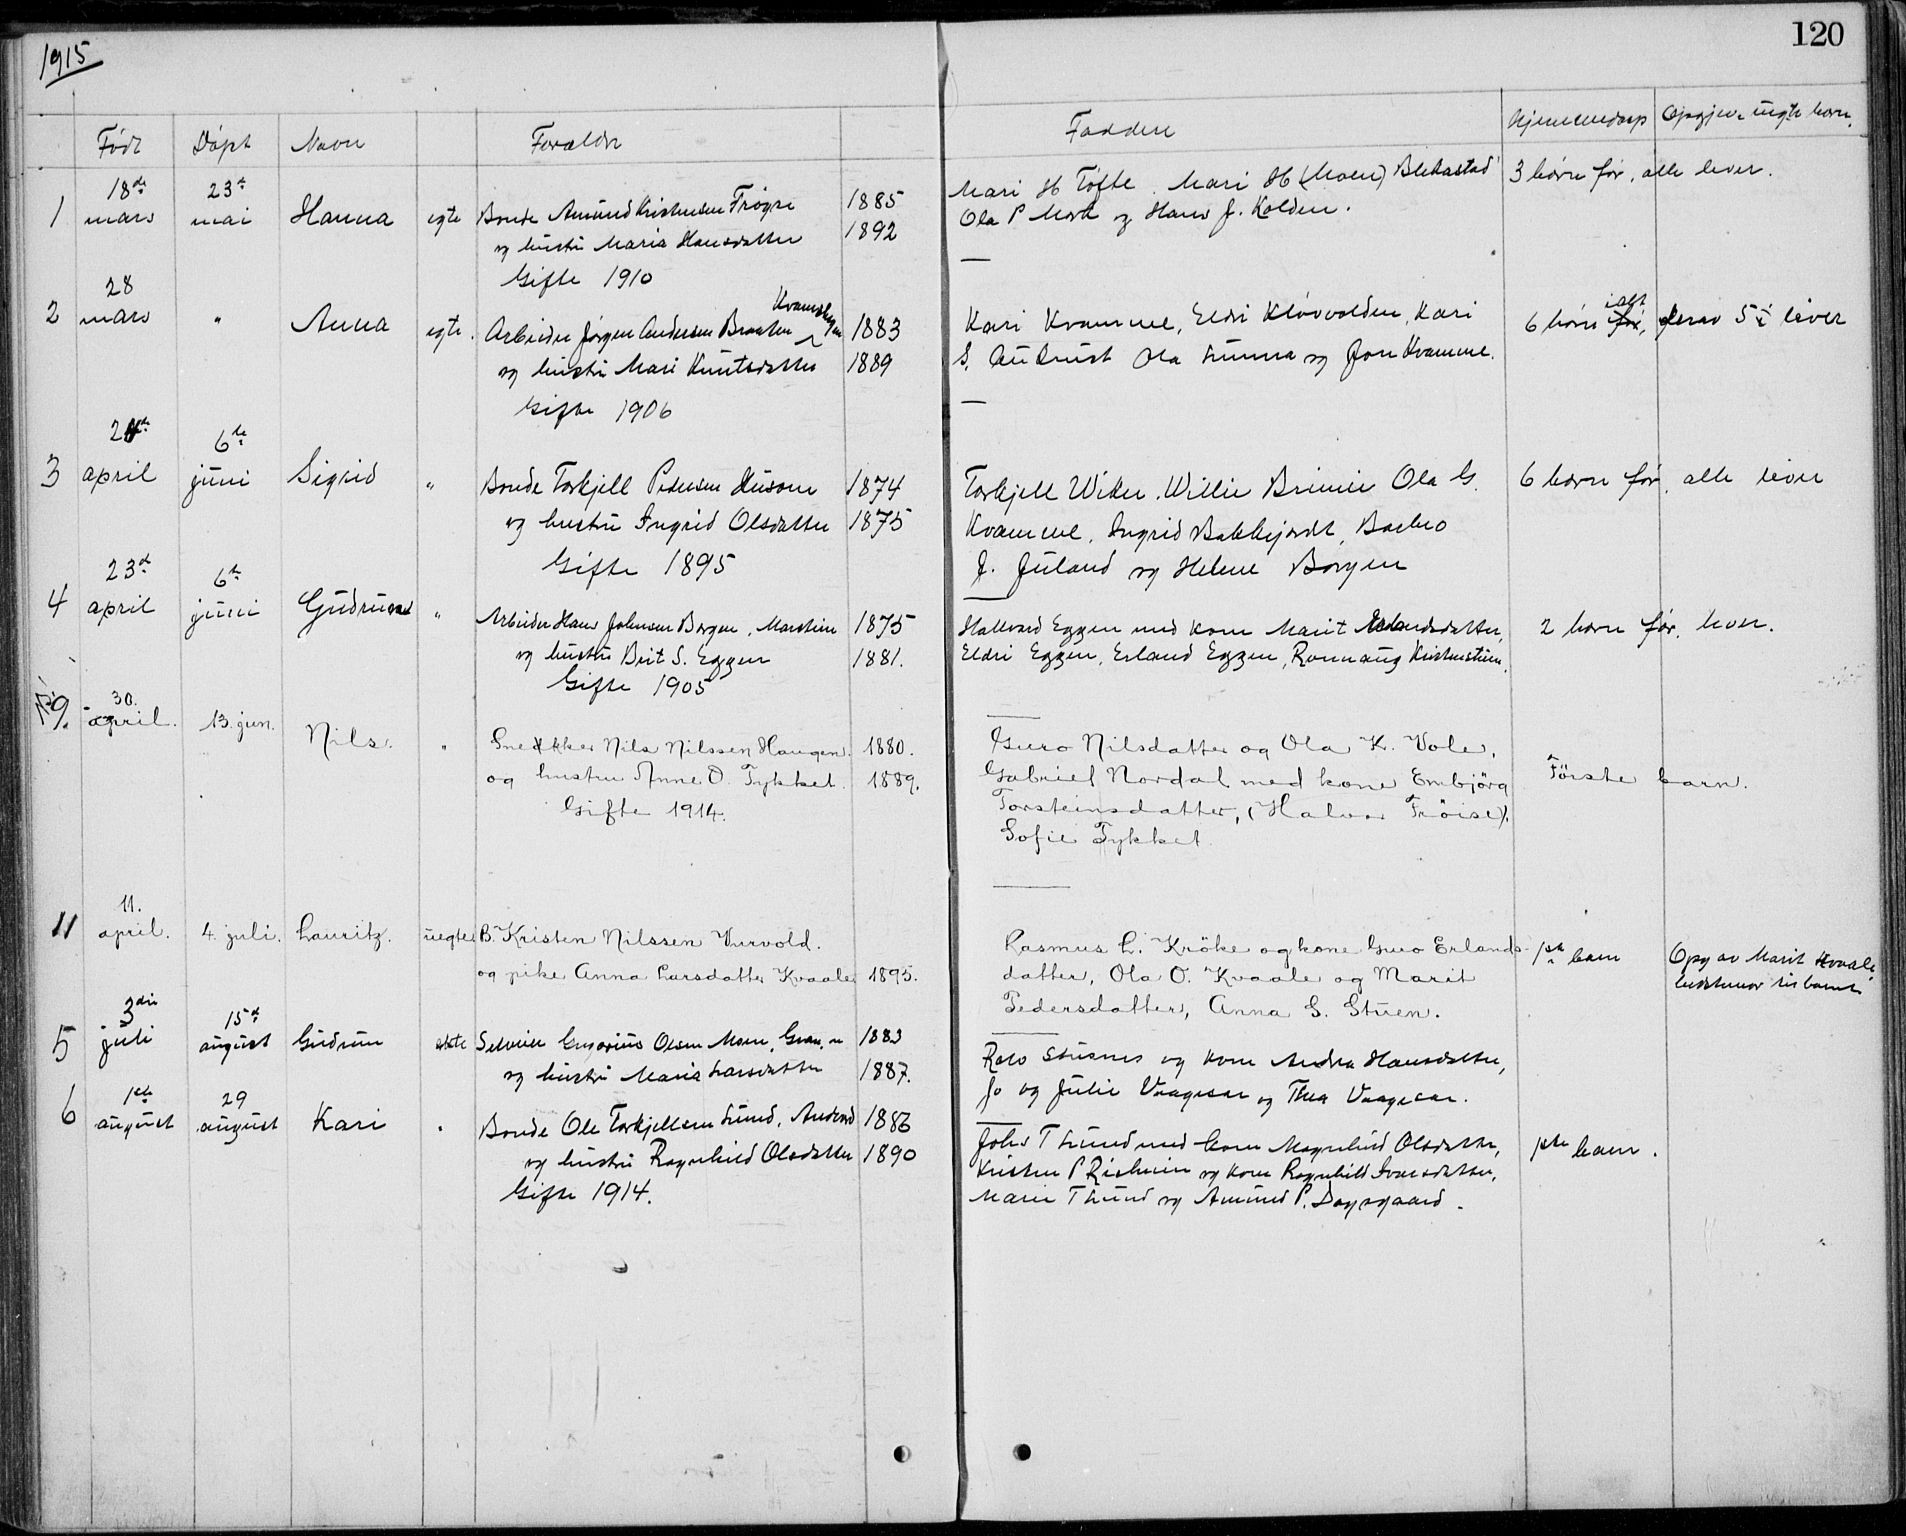 1915
120
Født Døpt Navn Forældre Faddere Hjemmedøp Opgjev. uegte børn.
18de 23de
1 mars mai Hanna egte Bonde Amund Kristensen Frøyse 1885
og hustru Maria Hansdatter 1892
Gifte 1910
Mari H Tofte. Mari H (Moen) Blekastad
Ola P Mork og Hans J. Kolden.
3 børn før, alle lever.
28
2 mars " Anna egte. Arbeider Jørgen Andersen Braaten 1883
og hustru Mari Knutsdatter 1889
Gifte 1906
Kari Kvamme, Eldri Kløvvolden, Kari
S. Ola Lunna og Jon Kvamme.
ialt
6 børn før, derav 5 i liver
24de 6te
3 april juni Sigrid " Bonde Torkjell Pedersen Husom 1874
og hustru Ingrid Olsdatter 1875
Gifte 1895
Torkjell Wiken. Willie Brimie Ola G.
Kvamme, Ingrid Bakkejordt, Barbro
J. Juland og Helene Børgen
6 børn før, alle lever
23de 6te
4 april juni Gudrun " Arbeider Hans Johnsen Borgen, Marstein 1875
og hustru Brit S. Eggen 1881.
Gifte 1905
Hallvard Eggen med kone Marit Erlandsdatter,
Eldri Eggen, Erland Eggen, Rønnaug Kristenstuen.
2 børn før, lever.
30.
9. april. 13. jun. Nils. " Snekker Nils Nilssen Haugen. 1880.
og hustru Anne O. Tykket. 1889.
Gifte 1914.
Guro Nilsdatter og Ola K. Vole,
Gabriel Nordal med kone Embjörg
Torsteinsdatter, (Halvor Fröise).
Sofie Tykket
Förste barn.
11.
11 april. 4. juli. Lauritz. uegte B. Kristen Nilssen Vurvold.
og pike Anna Larsdatter Kvaale 1895.
Rasmus L. Kröke og kone Guro Erlands-
datter, Ola O. Kvaale og Marit
Pedersdatter, Anna S. Stuen.
1ste barn
Opg av Marit Kvaale
bedstemor til barnet
3die 15de
5 juli august Gudrun ekte Olsen Moen, Gran, 1883
og hustru Maria Larsdatter 1887.
Stusnes og kone Andrea Hansdatter,
Jo og Julie Vaagesar og Thea Vaagesar.
1ste 29
6 august august Kari " Bonde Ole Torkjellsen Lund, 1886
og hustru Ragnhild Olsdatter 1890
Gifte 1914.
John T Lund med kone Magnhild Olsdatter,
Kristen P Risheim og kone Ragnhild Ivarsdatter,
Marie T Lund og Amund P. Dagsgaard.
1ste barn.